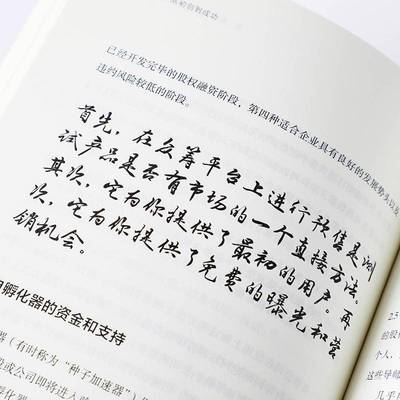 创到成功
已经开发完毕的股权融资阶段,第四种适合企业具有良好的发展势头以及
违约风险较低的阶段。
首先,在众筹平台上进行预售是测
试产品是否有市场的一个直接方法。
其次,它为你提供了最初的用户。再
次,它为你提供了免费的曝光和营
销机会。
孵化器的资金和支持
器(有时称为“种子加速器”)
或公司即将进入
2.5
的股
个人、
这些导师
几乎